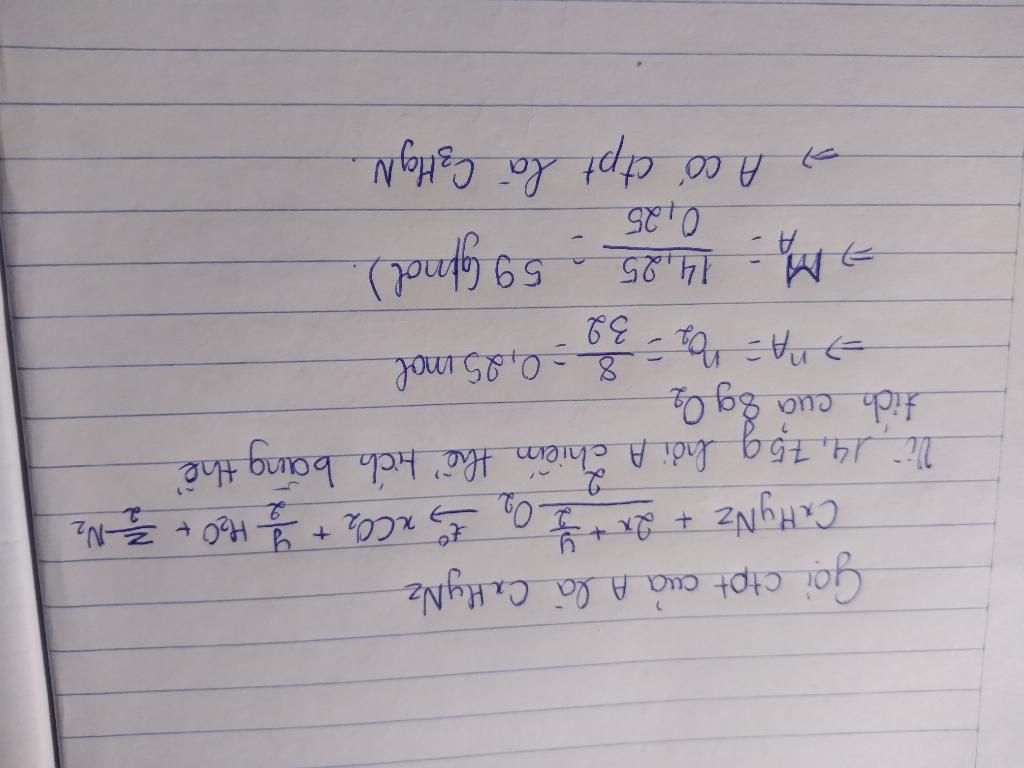 Gọi ctpt của A là CxHyNz
CxHyNz + (2x + y/2)/2 O2 t°→ xCO2 + y/2 H2O + z/2 N2
Vì 14,75g hơi A chiếm thể tích bằng thể
tích của 8g O2
=> nA = nO2 = 8/32 = 0,25 mol
=> MA = 14,25/0,25 = 59 (g/mol).
=> A có ctpt là C3H9N.